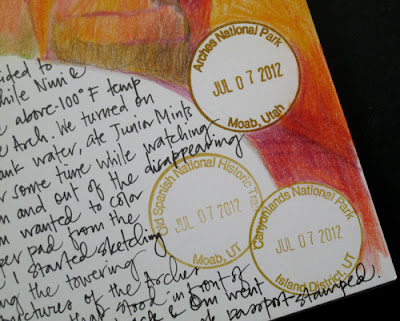 ided to
hile
above-100° F temp
Arch. We turned on
ank water, ate Junior Mints
r some time while watching
n and out of the disappearing
m wanted to color
per pad from the
I started sketching
ng the towering
uctures of the
that stood in front of
& Om went
passport stamped.
Arches National Park
JUL 07 2012
Moab, Utah
Old Spanish National Historic Trail
JUL 07 2012
Moab, UT
Canyonlands National Park
JUL 07 2012
Island District, UT